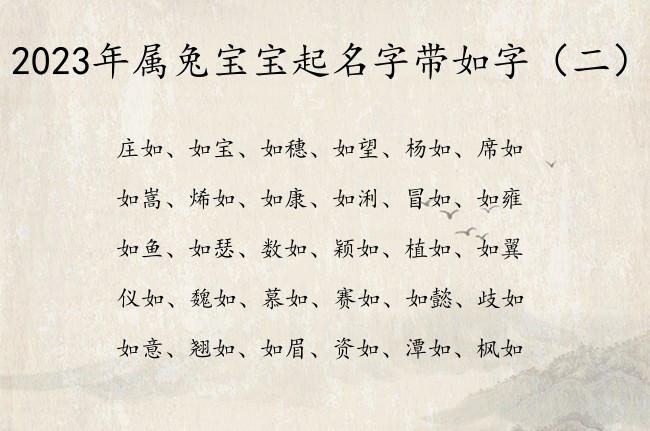 2023年属兔宝宝起名字带如字（二）
庄如、如宝、如穗、如望、杨如、席如
如嵩、烯如、如康、如浰、冒如、如雍
如鱼、如瑟、数如、颖如、植如、如翼
仪如、魏如、慕如、赛如、如懿、歧如
如意、翘如、如眉、资如、潭如、枫如